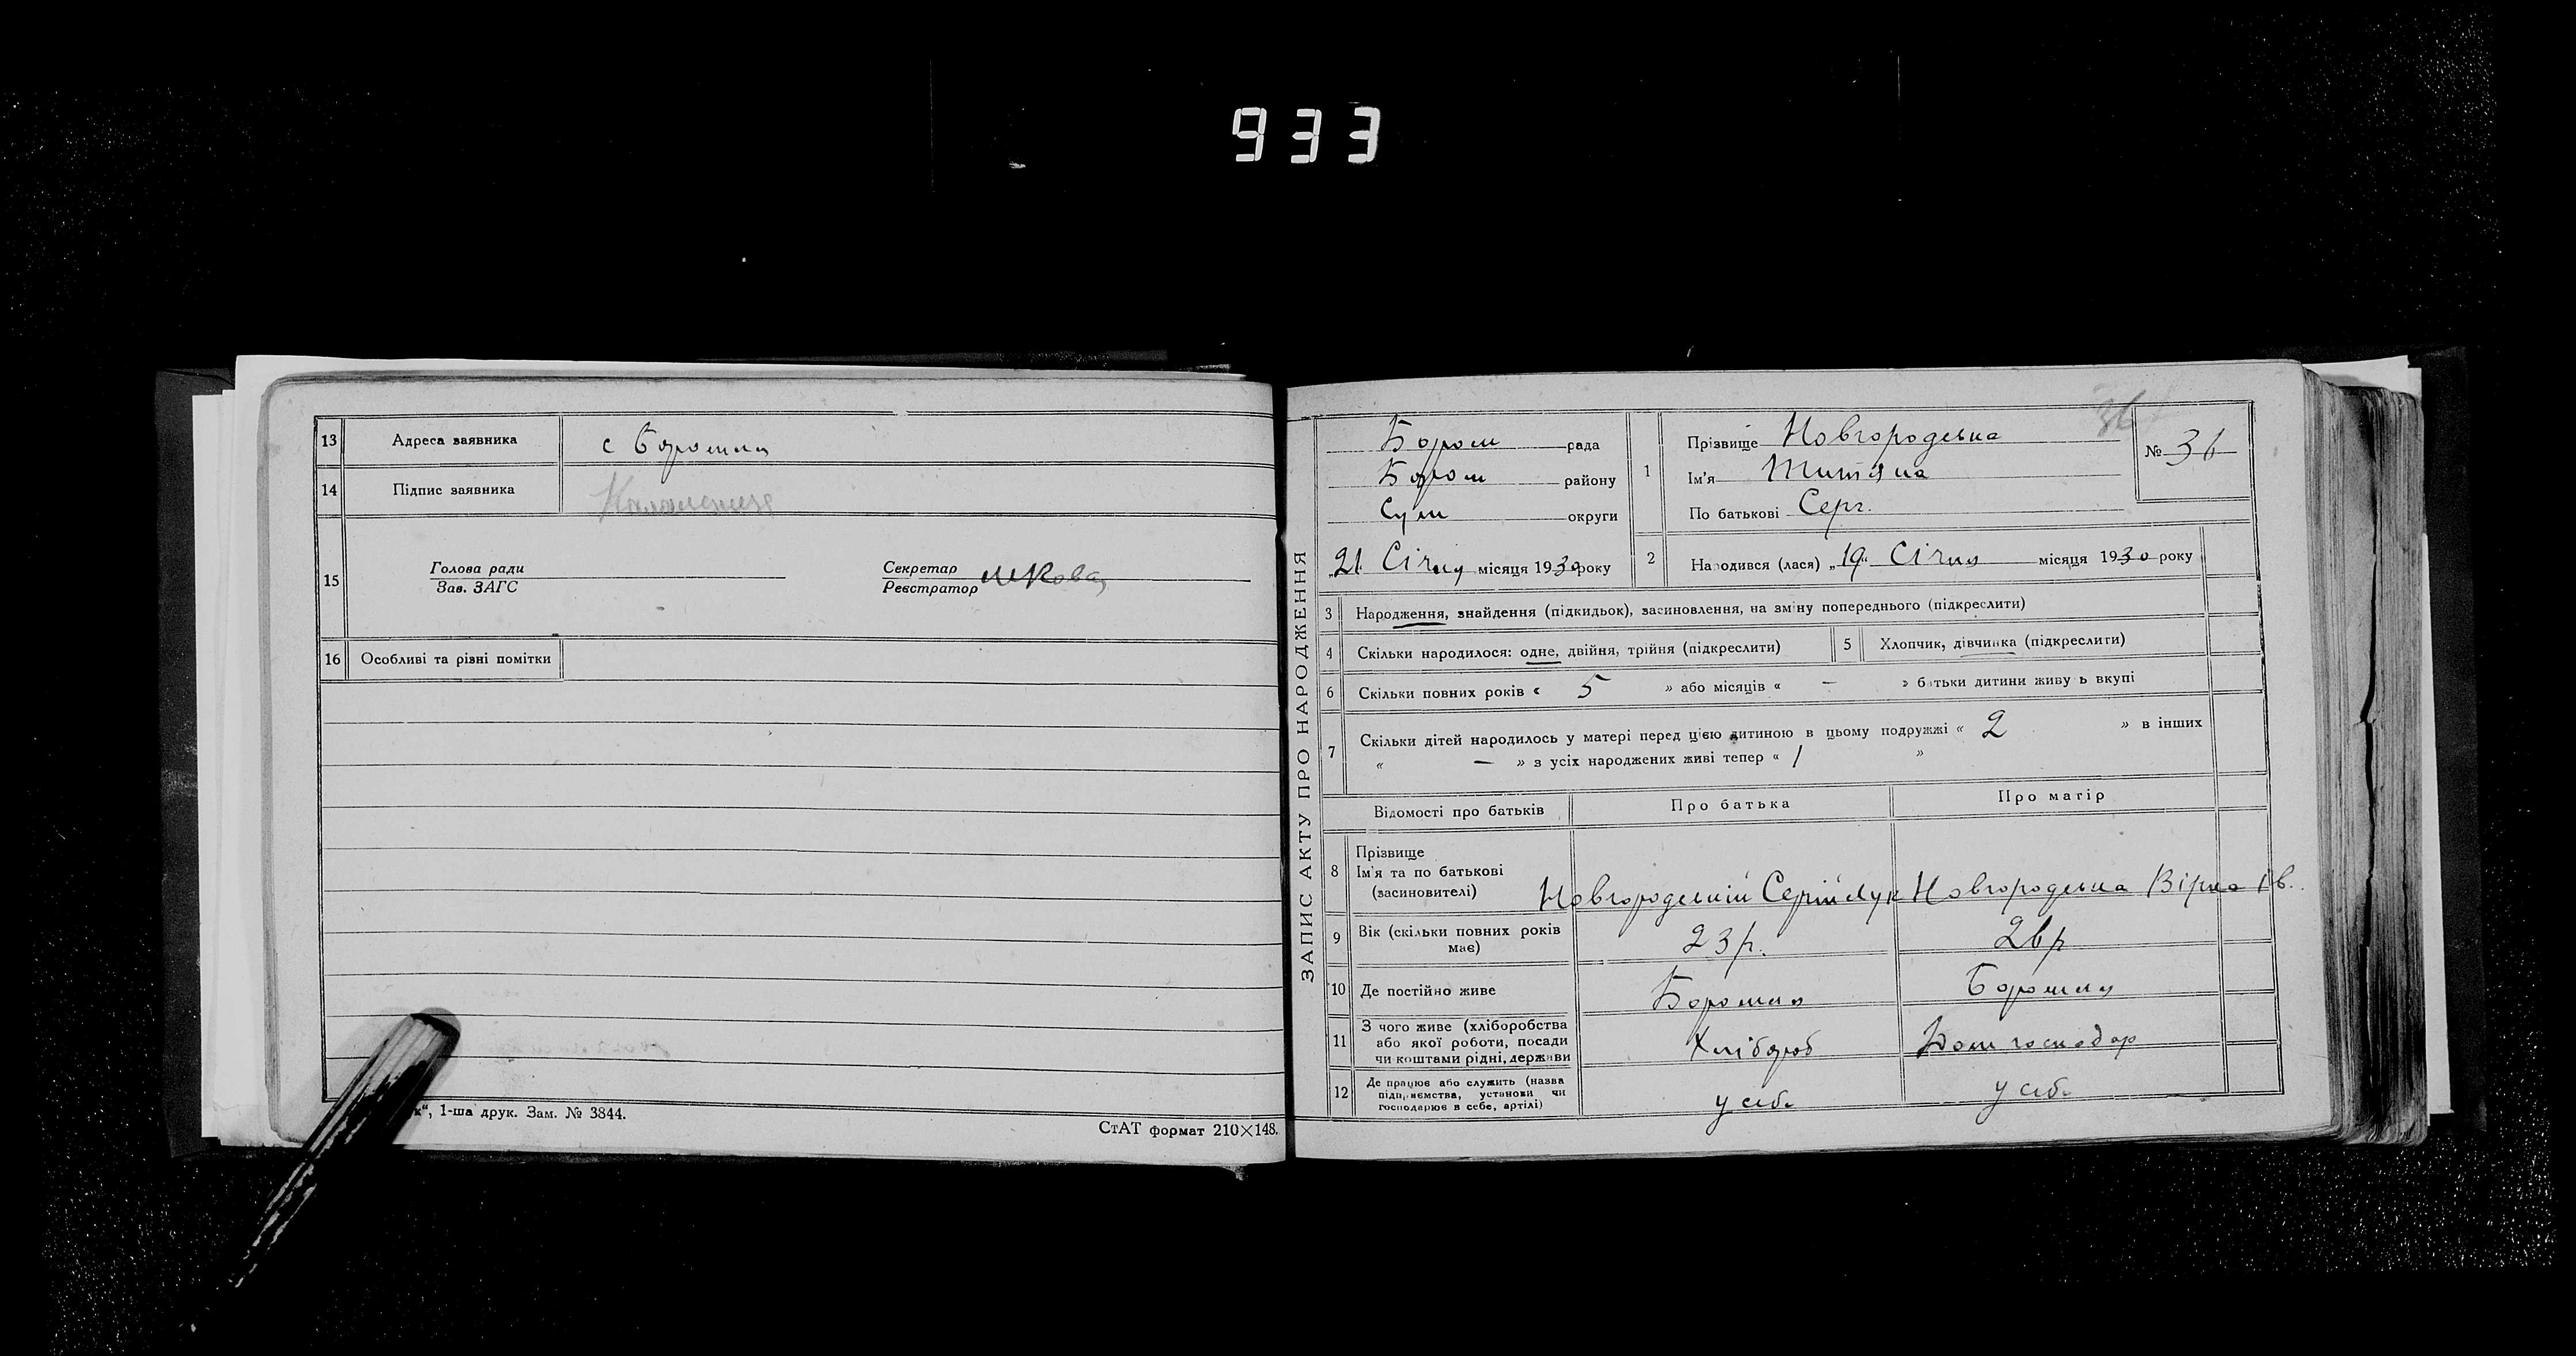 933
13 Адреса заявника с Боромля
14 Підпис заявника
15 Голова ради
Зав. ЗАГС
Секретар
Реєстратор
16 Особливі та різні помітки
к“, 1-ша друк. Зам. № 3844.
СтАТ формат 210×148.
ЗАПИС АКТУ ПРО НАРОДЖЕННЯ
36
Бором рада
Бором району
Сум округи
„21 Січня місяця 1930 року
1 Прізвище Новгородська
Ім'я Титяна
По батькові Серг.
№ 36
2 Народився (лася) „19“ Січня місяця 1930 року
3 Народження, знайдення (підкидьок), засиновлення, на зміну попереднього (підкреслити)
4 Скільки народилося: одне, двійня, трійня (підкреслити)
5 Хлопчик, дівчинка (підкреслити)
6 Скільки повних років « 5 » або місяців « — » батьки дитини живуть вкупі
7 Скільки дітей народилось у матері перед цією дитиною в цьому подружжі « 2 » в інших
« — » з усіх народжених живі тепер « 1 »
Відомості про батьків Про батька Про матір
8 Прізвище
Ім'я та по батькові
(засиновителі)
Новгородський Сергій Лук Новгородська Вірка Ів.
9 Вік (скільки повних років
має)
23 р. 26 р
10 Де постійно живе Боромля Боромля
11 З чого живе (хліборобства
або якої роботи, посади
чи коштами рідні, держави
Хлібороб Дом господар
12 Де працює або служить (назва
підприємства, установи чи
господарює в себе, артілі)
у себе у себе